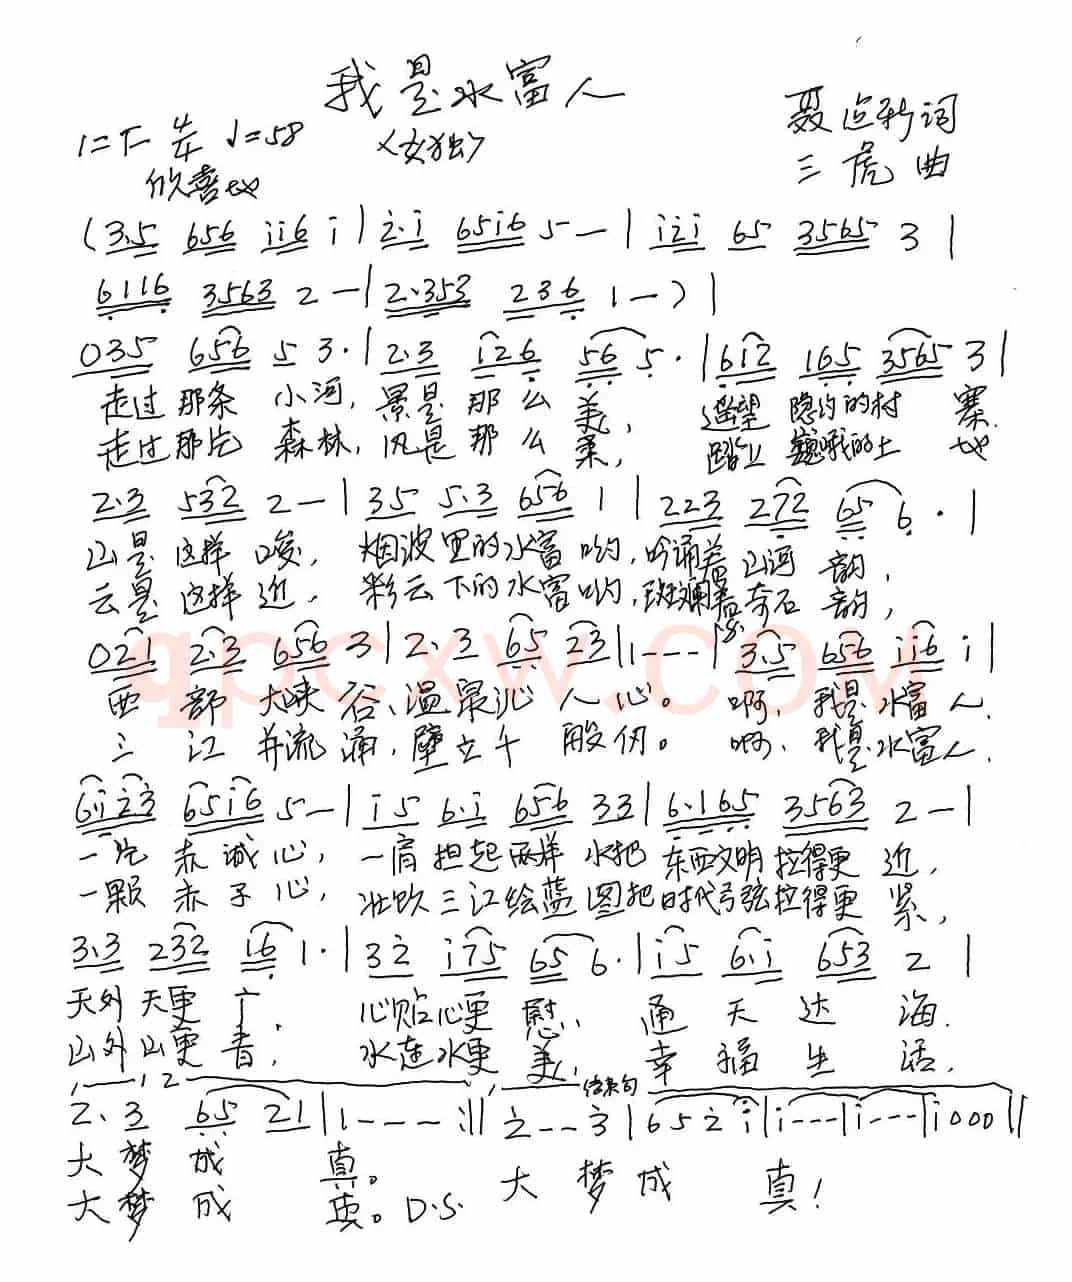 我是水富人
1=F 4/4 ♩=58
<女独>
聂 新词
三虎曲
欣喜地
(3.5 656 116 1|2.1 6516 5—|121 65 3565 3|
6116 3563 2—|2.353 236 1—)|
035 656 5 3.|2.3 126 56 5.|612 165 3565 3|
走过那条 小河,景是那么 美, 遥望 隐约的村 寨.
走过那片 森林,风是那么 柔, 踏上 巍峨的土 地
2.3 532 2—|35 5.3 656 1|223 272 65 6.|
山是这样 峻, 烟波里的水富哟,吟诵着山河 韵,
云是这样 近. 彩云下的水富哟,斑斓着奇石 韵,
qpcxw.COM
021 2.3 656 3|2.3 65 23|1---|3.5 656 116 1|
西 部 大峡 谷、温泉沁 人 心。 啊, 我是水富人.
三 江 并流 涌,壁立千 般仞。 啊, 我是水富人.
6123 6516 5—|15 6.1 656 33|6.165 3563 2—|
一片 赤诚心, 一肩担起两样 水把 东西文明拉得更 近,
一颗 赤子心, 壮饮三江绘蓝 图把时代弓弦拉得更 紧,
3.3 232 16 1.|32 175 65 6.|15 6.1 653 2|
天外天更 , 心贴心更 慰, 通 天 达 海.
山外山更青, 水连水更 美, 幸 福 生 活.
1 2 结束句
2.3 65 21|1---:||2--3|652 1|1---|1---|1000||
大 梦 成 真。 大 梦 成 真!
大 梦 成 真。D.S.